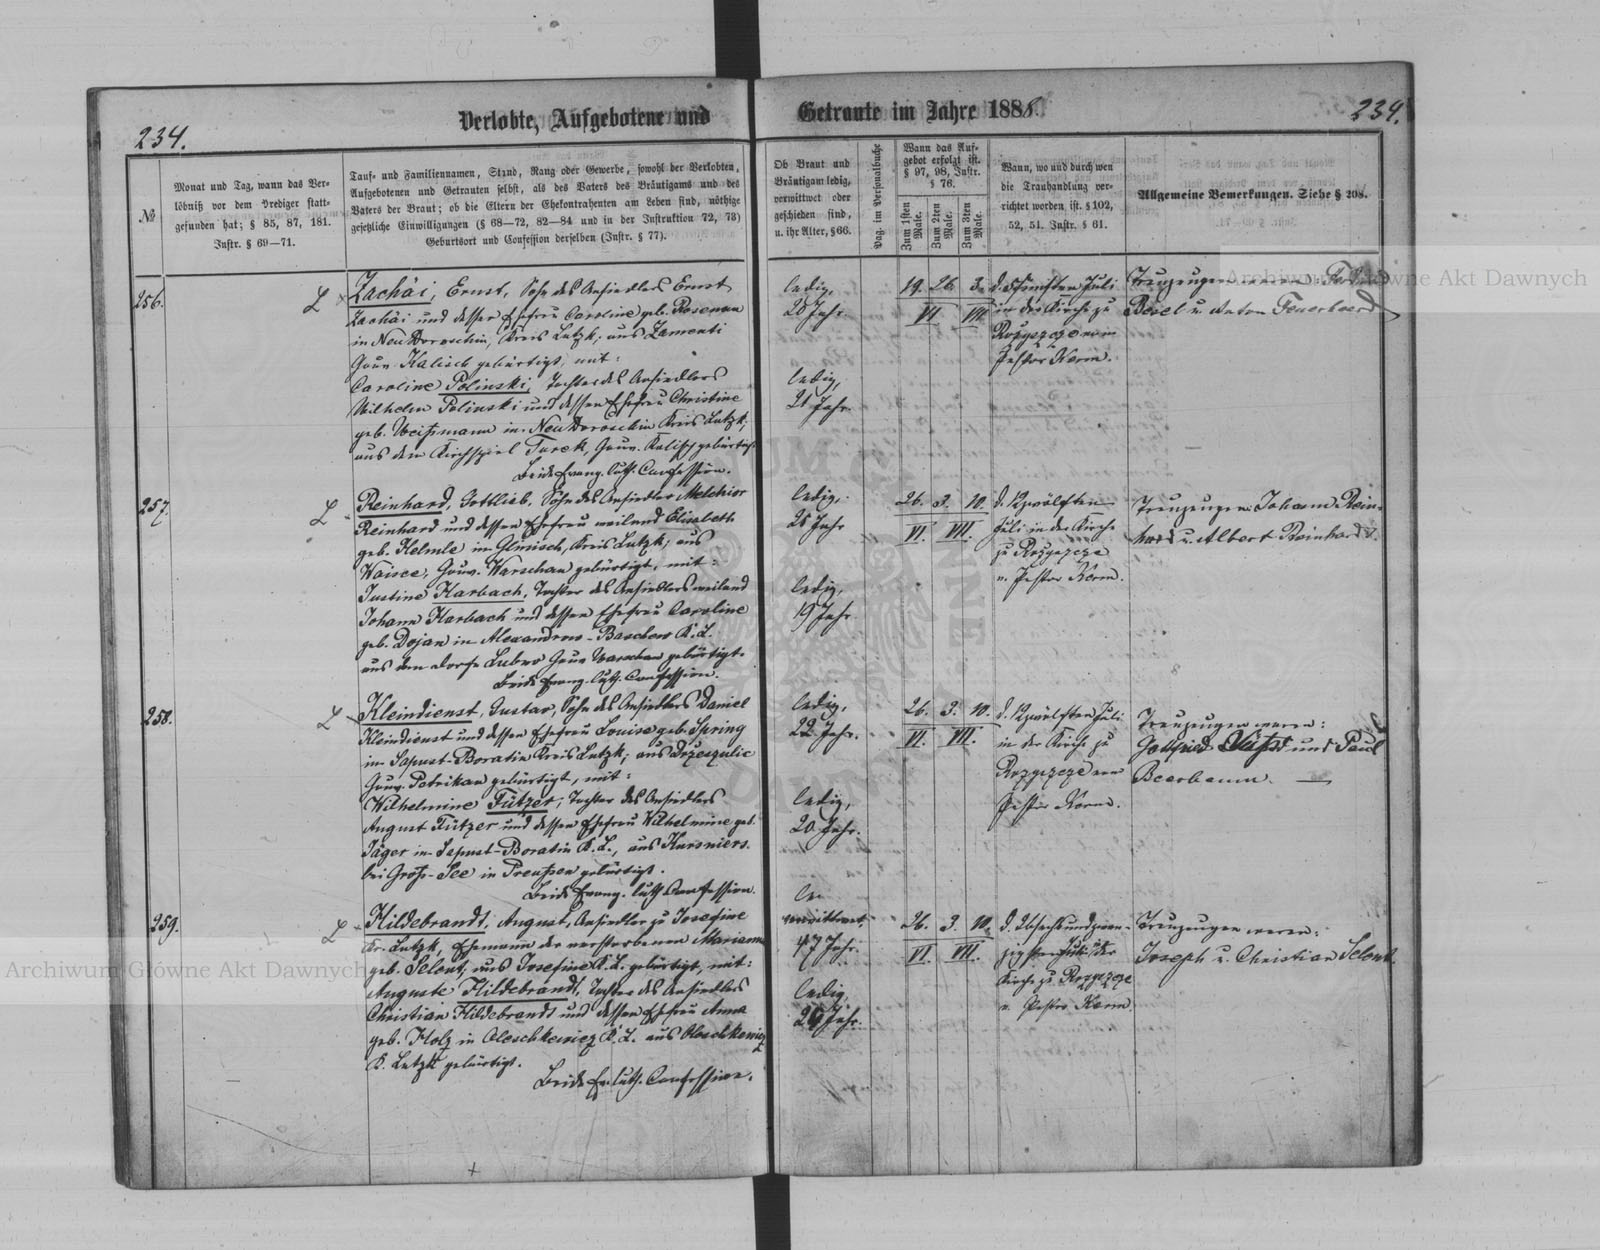 234.
Verlobte, Aufgebotene und
Getraute im Jahre 1888.
234.
№
Monat und Tag, wann das Ver-
löbniß vor dem Prediger statt-
gefunden hat; § 85, 87, 181.
Instr. § 69—71.
Tauf- und Familiennamen, Stand, Rang oder Gewerbe, sowohl der Verlobten,
Aufgebotenen und Getrauten selbst, als des Vaters des Bräutigams und des
Vaters der Braut; ob die Eltern der Ehekontrahenten am Leben sind, nöthige
gesetzliche Einwilligungen (§ 68—72, 82—84 und in der Instruktion 72, 73)
Geburtsort und Confession derselben (Instr. § 77).
Ob Braut und
Bräutigam ledig,
verwittwet oder
geschieden sind,
u. ihr Alter, § 66.
Pag. im Personalbuche
Wann das Auf-
gebot erfolgt ist.
§ 97, 98, Instr.
§ 76.
Zum 1sten
Male.
Zum 2ten
Male.
Zum 3ten
Male.
Wann, wo und durch wen
die Trauhandlung ver-
richtet worden ist. § 102,
52, 51. Instr. § 61.
Allgemeine Bemerkungen. Siehe § 208.
256.
Zachäi, Ernst, Sohn des Ansiedlers Ernst
Zachäi und dessen Ehefrau Caroline geb. Rosenau
in Neu Doroschin, Kreis Lutzk; aus Zamenti
Gouv. Kalisch gebürtigt, mit:
Caroline Polinski, Tochter des Ansiedlers
Wilhelm Polinski und dessen Ehefrau Christine
geb. Weißmann in Neu Doroschin Kreis Lutzk;
aus dem Kirchspiel Turek, Gouv. Kalisch gebürtigt
Beide Evang. luth. Confession.
ledig,
Jahr
ledig,
21 Jahr.
19. 26. 3.
VI VII
d. Juli
in der Kirche zu
Rozyszcze vom
Pastor Kerm.
Trauzeugen waren:
Besel u. Anton Feuerherd
257.
Reinhard, Gottlieb, Sohn des Ansiedler Melchior
Reinhard und dessen Ehefrau weiland Elisabeth
geb. Helmle in Glinisch, Kreis Lutzk; aus
Waisee, Gouv. Warschau gebürtigt, mit:
Justine Harbach, Tochter des Ansiedlers weiland
Johann Harbach und dessen Ehefrau Caroline
geb. Dojan in Alexandrow-Baschow K. L.
aus dem Dorfe Lubno Gouv Warschau gebürtigt.
Beide Evang. luth. Confession.
ledig,
Jahr
ledig,
19 Jahr.
26. 3. 10.
VI. VII.
d. Zwölften
Juli in der Kirche
zu Rozyszcze
v. Pastor Kerm.
Trauzeugen: Johann Rein-
hard u. Albert Reinhard.
258.
Kleindienst, Gustav, Sohn des Ansiedlers Daniel
Kleindienst und dessen Ehefrau Louise geb. Spring
in Sapust-Boratin Kreis Lutzk; aus
Gouv. Petrikau gebürtigt, mit:
Wilhelmine Fützer, Tochter des Ansiedlers
August Fützer und dessen Ehefrau Wilhelmine geb.
Jäger in Sapust-Boratin K. L., aus
bei Groß-See in Preußen gebürtigt.
Beide Evang. luth Confession.
ledig,
22 Jahr.
ledig,
20 Jahr.
26. 3. 10.
VI. VII.
d. Zwölften Juli
in der Kirche zu
Rozyszcze vom
Pastor Kerm.
Trauzeugen waren:
Gottfried und Paul
Beerbaum.
259.
Hildebrandt, August, Ansiedler zu Josefine
Kr. Lutzk, Ehemann der verstorbenen Marianne
geb. Selent, aus Josefine K. L. gebürtigt, mit:
Auguste Hildebrandt, Tochter des Ansiedlers
Christian Hildebrandt und dessen Ehefrau Anna
geb. Holz in Oleschkewiez K. L. aus Oleschkewiez
K. Lutzk gebürtigt.
Beide Ev. luth. Confession.
verwittwet,
47 Jahr.
ledig,
Jahr.
26. 3. 10.
VI. VII.
zigsten Juli in der
Kirche zu Rozyszcze
v. Pastor Kerm
Trauzeugen waren:
Joseph u. Christian Selent.
Archiwum Główne Akt Dawnych
Archiwum Główne Akt Dawnych